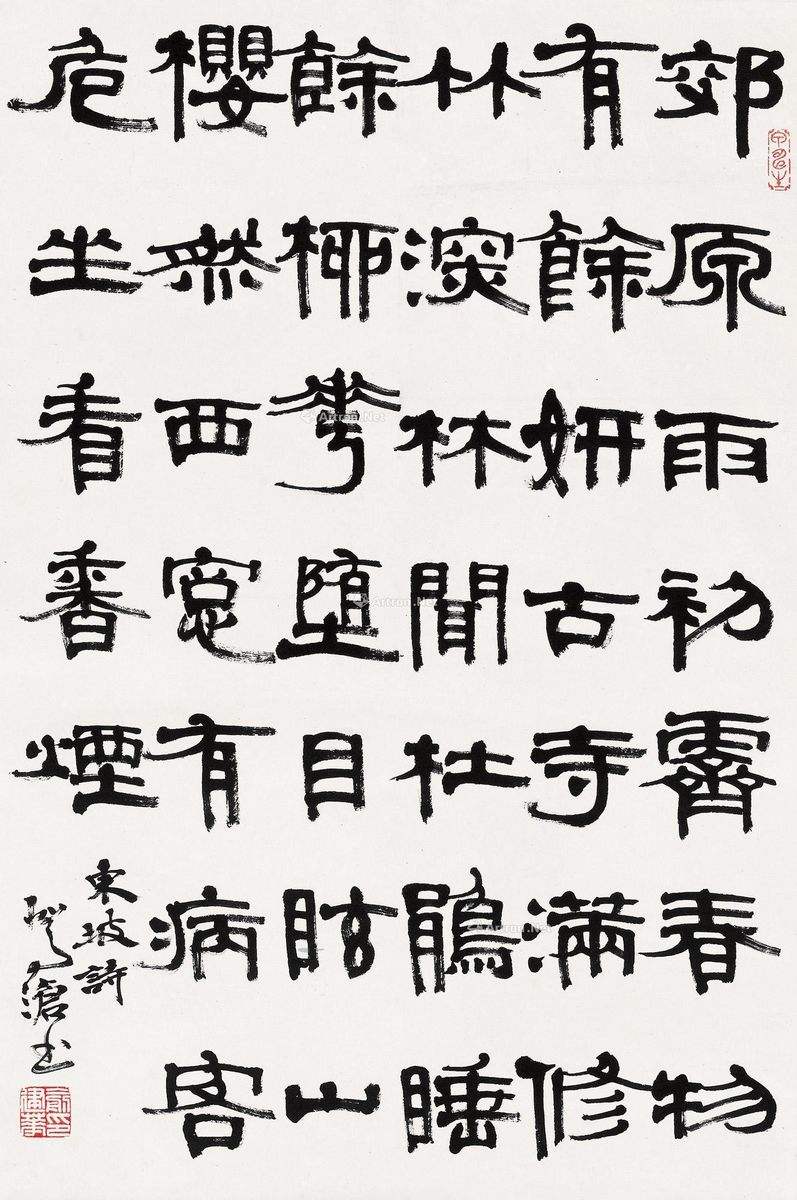 郊原雨初霽春物
有餘妍古寺滿修
竹深林聞杜鵑睡
餘柳華墮目眩山
櫻然西窓有病客
危坐看香煙
東坡詩
滄书
Artron.Net
Artron.Net